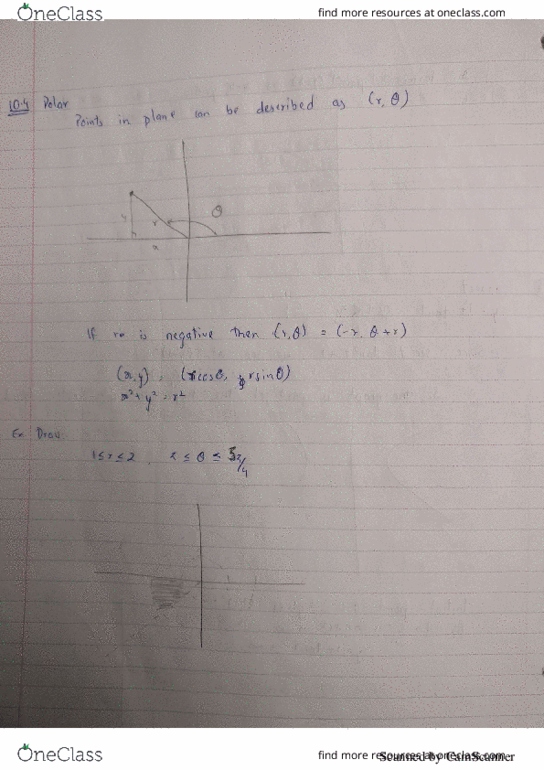 OneClass
find more resources at oneclass.com
10.4 Polar
Points in plane can be described as (r, θ)
θ
y r
x
If r is negative then (r,θ) = (-r, θ+π)
(x,y) = (rcosθ, rsinθ)
x² + y² = r²
Ex Draw
1≤r≤2 π ≤ θ ≤ 5π/4
OneClass
find more resources at oneclass.com
Scanned by CamScanner